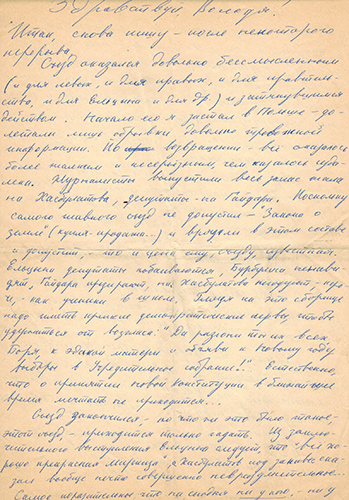 Здравствуй, Володя!
Итак, снова пишу - после некоторого
перерыва.
Съезд оказался довольно бессмысленным
(и для левых, и для правых, и для правитель-
ства, и для Ельцина и для др.) и затянувшимся
действом. Начало его я застал в Польше - до-
летали лишь обрывки довольно тревожной
информации. По возвращении - все оказалось
более мелким и несерьезным, чем казалось изда-
лека. Журналисты выпустили весь запас
на Хасбулатова, депутаты - на Гайдара. Поскольку
самого главного съезд не допустил - Закона о
земле (купля-продажа...) и врядли в этом составе
и допустит, - то и цена ему, съезду, известная.
Ельцина депутаты побаиваются, Бурбулиса ненави-
дят, Гайдара презирают, на Хасбулатова негодуют,
- как ученики в школе. Глядя на это сборище
надо иметь крепкие демократические нервы, чтобы
удержаться от возгласа: "Да разгони ты их всех
Боря, к эдакой матери и объяви к Новому году
выборы в Учредительное собрание!" Естественно,
что о принятии новой Конституции в ближайшее
время мечтать не приходится...
Съезд закончился, - но что же это было такое -
этот съезд, - приходится только гадать. Из заклю-
чительного выступления Ельцина следует, что "все хо-
рошо, прекрасная маркиза", а Хасбулатов под занавес ска-
зал вообще нечто совершенно невразумительное...
Самое неприятное что ни